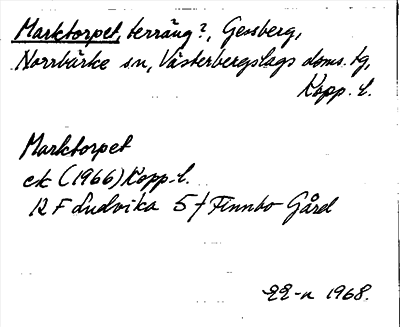 Marktorpet, terräng?, Gessberg,
Norrbärke sn, Västerbergslags doms. tg,
Kopp. l.
Marktorpet
ek (1966) Kopp. l.
RF Ludvika 5f Finnbo Gård
1968.